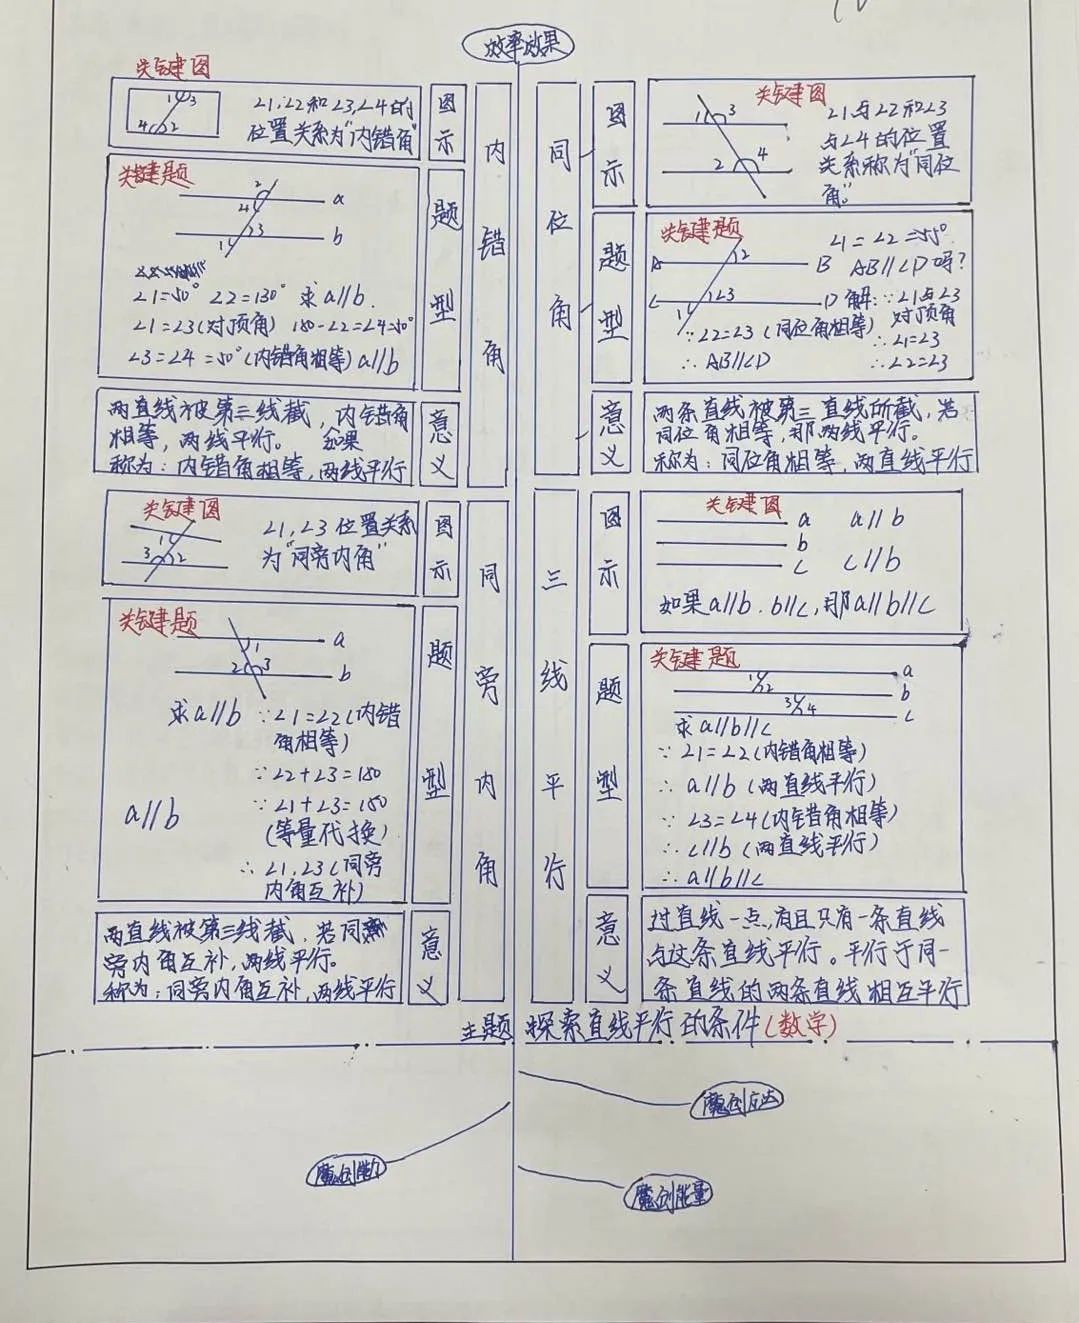 效率效果
关键图
1 3
4 2
∠1,∠2和∠3,∠4的
位置关系为"内错角"
图示
内错角
关键题
2
4
a
3
1
b
∠1=50° ∠2=130° 求a//b.
∠1=∠3(对顶角) 180-∠2=∠4=50°
∠3=∠4=50°(内错角相等)a//b
题型
两直线被第三线截,内错角
相等,两线平行。 如果
称为:内错角相等,两线平行
意义
同位角
图示
关键图
1 3
2 4
∠1与∠2和∠3
与∠4的位置
关系称为"同位
角"。
题型
关键题
A 2 B
C 3 D
1
∠1=∠2=55°
AB//CD吗?
解:∵∠1与∠3
对顶角
∴∠1=∠3
∴∠2=∠3
∵∠2=∠3(同位角相等)
∴AB//CD
意义
两条直线被第三直线所截,若
同位角相等,那两线平行。
称为:同位角相等,两直线平行
关键图
1
3 2
∠1,∠3位置关系
为"同旁内角"
图示
同旁内角
关键题
1 a
2 3 b
求a//b ∵∠1=∠2(内错
角相等)
∵∠2+∠3=180
∵∠1+∠3=180
(等量代换)
a//b
∴∠1,∠3(同旁
内角互补)
题型
两直线被第三线截,若同
旁内角互补,两线平行。
称为:同旁内角互补,两线平行
意义
三线平行
图示
关键图
a a//b
b
c c//b
如果a//b.b//c,那a//b//c
题型
关键题
a
1 2 b
3 4 c
求a//b//c
∵∠1=∠2(内错角相等)
∴a//b(两直线平行)
∵∠3=∠4(内错角相等)
∴c//b(两直线平行)
∴a//b//c
意义
过直线一点,有且只有一条直线
与这条直线平行。平行于同一
条直线的两条直线相互平行
主题 探索直线平行的条件(数学)
魔创应达
魔创能力
魔创能量